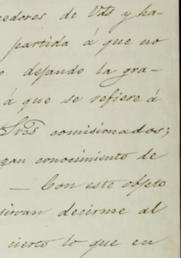 cedores de Vds y ha-
partida á que no
e dejando la gra-
á que se refiere á
Sres comisionados;
gan conocimiento de
— Con este objeto
sirvan decirme al
cierto lo que en